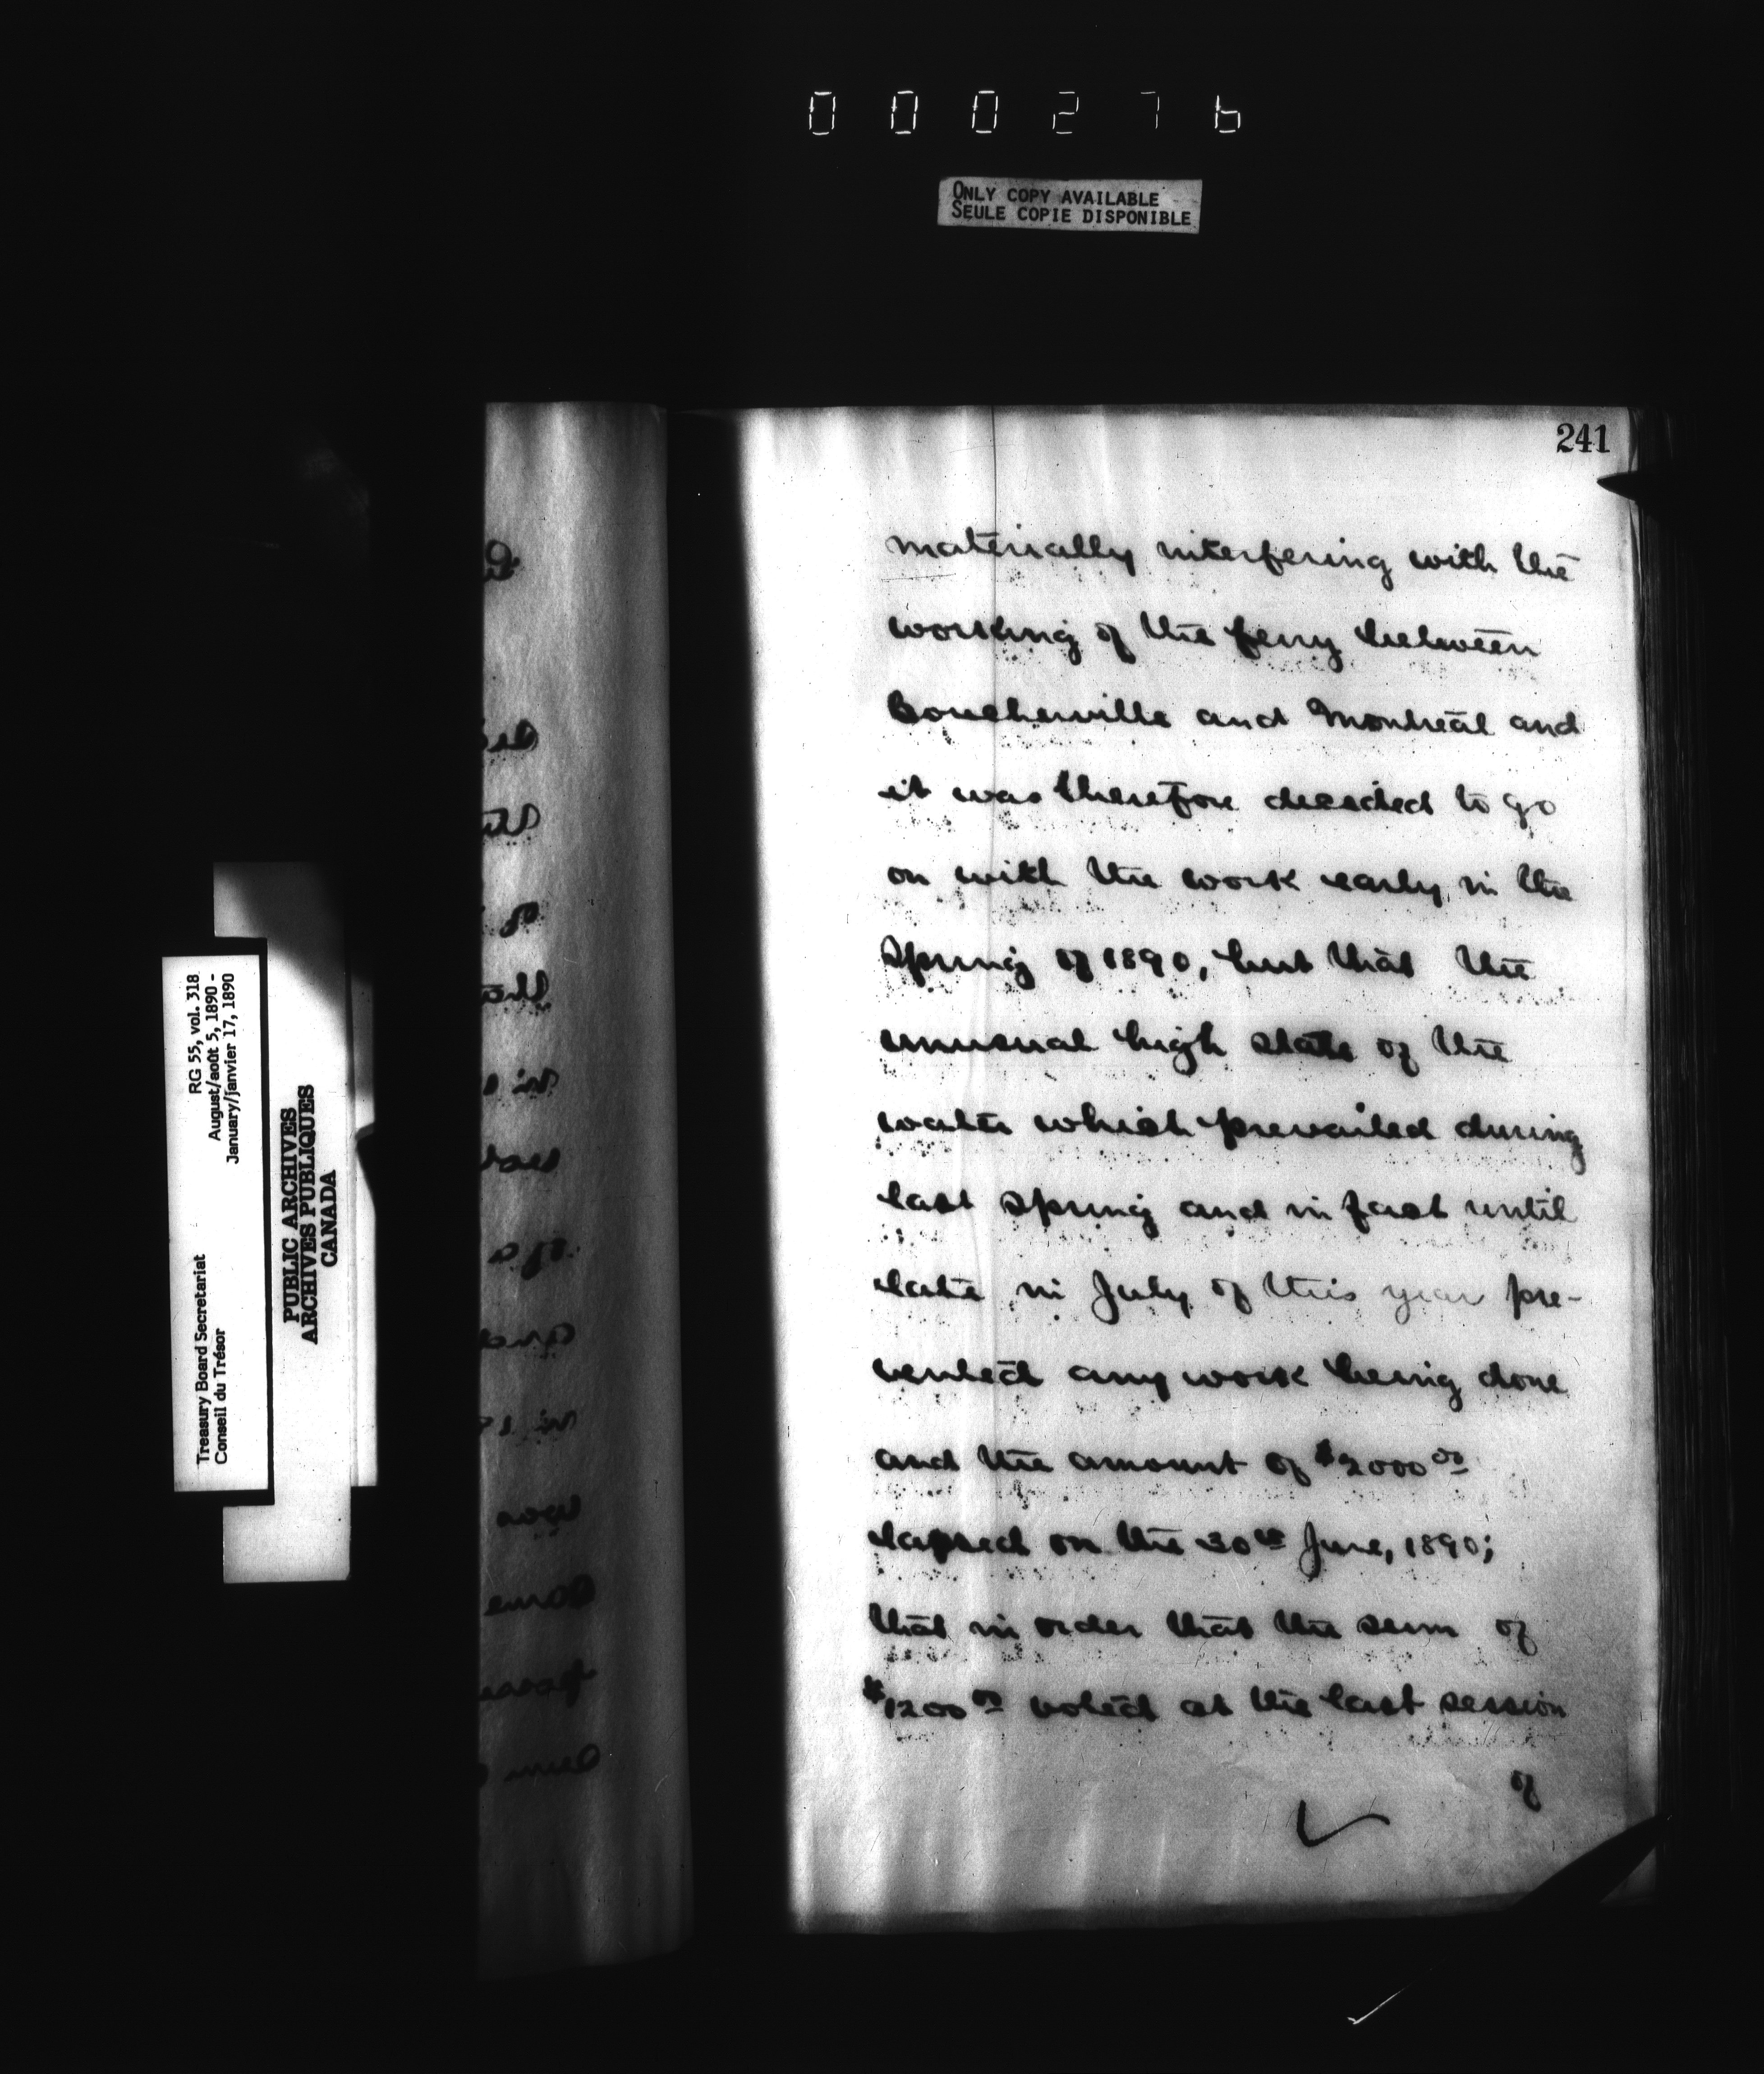 000276
ONLY COPY AVAILABLE
SEULE COPIE DISPONIBLE
241
materially interfering with the
working of the ferry between
Boucherville and Montreal and
it was therefore decided to go
on with the work early in the
Spring of 1890, but that the
unusual high state of the
water which prevailed during
last Spring and in fact until
late in July of this year pre-
vented any work being done
and the amount of $2000 00
lapsed on the 30th June, 1890;
that in order that the sum of
$1200 00 voted at the last session
of
Treasury Board Secretariat RG 55, vol. 318
Conseil du Trésor August/août 5, 1890 -
January/janvier 17, 1890
PUBLIC ARCHIVES
ARCHIVES PUBLIQUES
CANADA